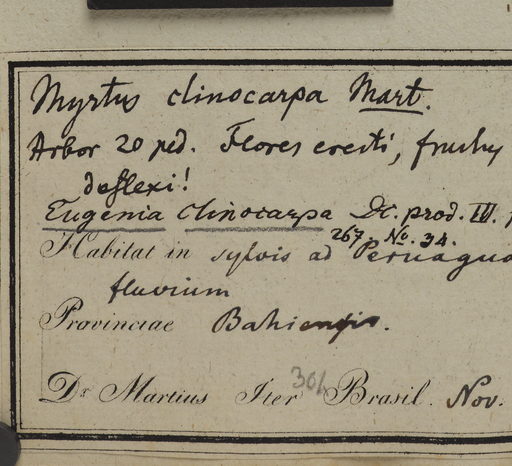 Myrtus clinocarpa Mart.
Arbor 20 ped. Flores erecti, fructus
deflexi!
Eugenia clinocarpa DC. prod. III. p
267. No. 34.
Habitat in sylvis ad Peruagua
fluvium
Provinciae Bahiensis.
301
Dr Martius Iter Brasil. Nov.